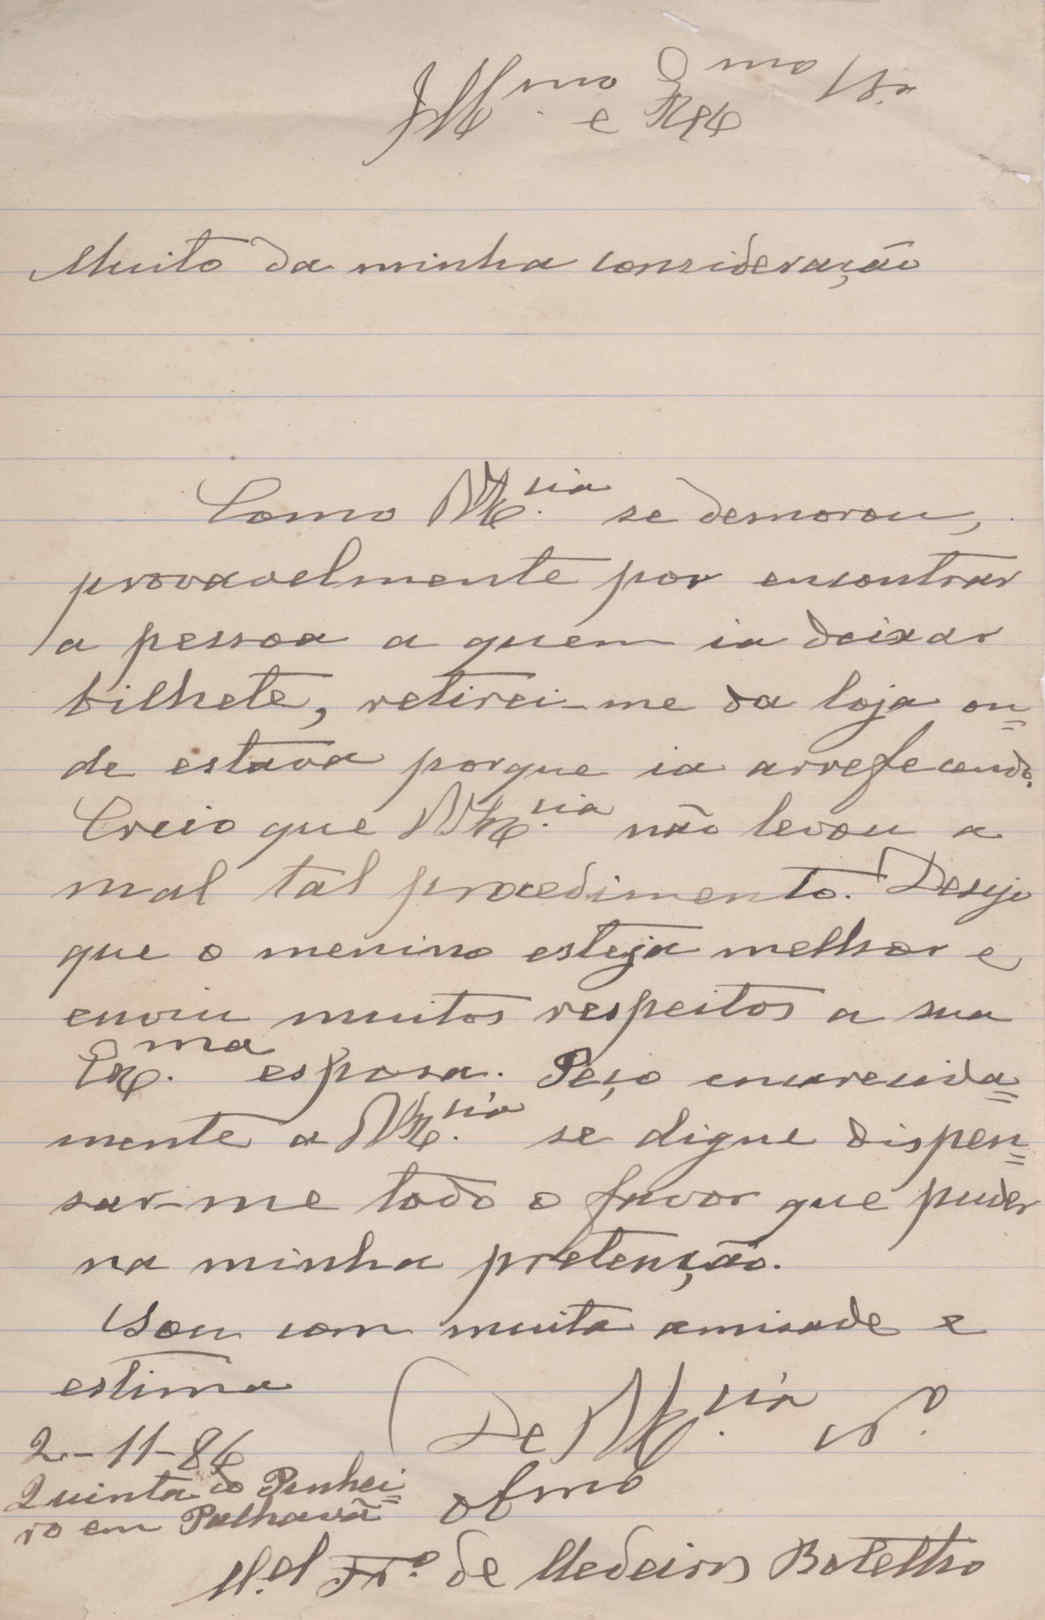 Ill.mo e Ex.mo Sr.
Muito da minha consideração
Como V. Ex.cia se demorou,
provavelmente por encontrar
a pessoa a quem ia deixar
bilhete, retirei-me da loja on=
de estava porque ia arrefecendo.
Creio que V. Ex.cia não levou a
mal tal procedimento. Desejo
que o menino esteja melhor e
envio muitos respeitos a sua
Ex.ma esposa. Peço encarecida=
mente a V. Ex.cia se digne dispen=
sar-me todo o favor que puder
na minha pretenção.
Sou com muita amisade e
estima
De V. Ex.cia
2-11-86
Quinta do Pinhei=
ro em Palhavã
M.el Fr.o de Medeiros Botelho